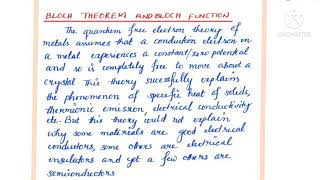 BLOCH THEOREM AND BLOCH FUNCTION
The quantum free electron theory of
metals assumes that a conduction electron in
a metal experiences a constant/zero potential
and so is completely free to move about a
crystal. This theory sucessfully explains
the phenomenon of specific heat of solids,
thermionic emission, electrical conductivity
etc. But this theory could not explain
why some materials are good electrical
conductors, some others are electrical
insulators and yet a few others are
semiconductors